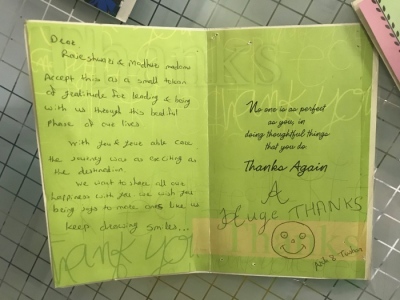 Dear
Rajeshwari & Madhuri madam
Accept this as a small token
of gratitude for lending & being
with us through this beatiful
phase of our lives.
With you & your able care
the journey was as exciting as
the destination.
We want to share all our
happiness with you we wish you
being joys to more ones like us
keep drawing smiles...
Thank you
No one is as perfect
as you, in
doing thoughtful things
that you do.
Thanks Again
A
Huge THANKS
Thanks